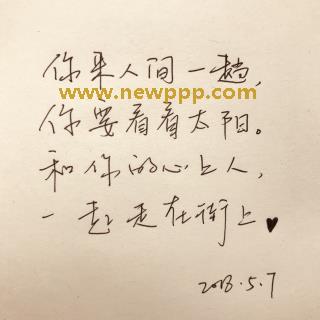 你来人间一趟,
www.newppp.com
你要看看太阳。
和你的心上人,
一起走在街上♥
2018.5.7